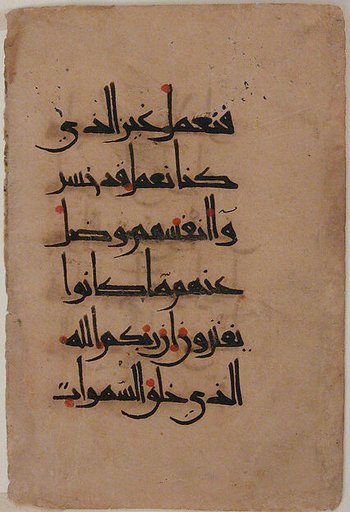 فنعمل غير الذى
كنا نعمل قد خسر
وا انفسهم وضل
عنهم ما كانوا
يفترون ان ربكم الله
الذى خلق السموات